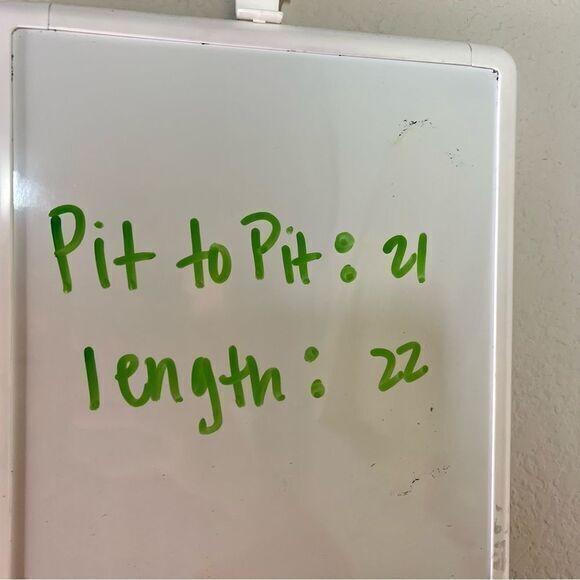 Pit to Pit: 21
length: 22